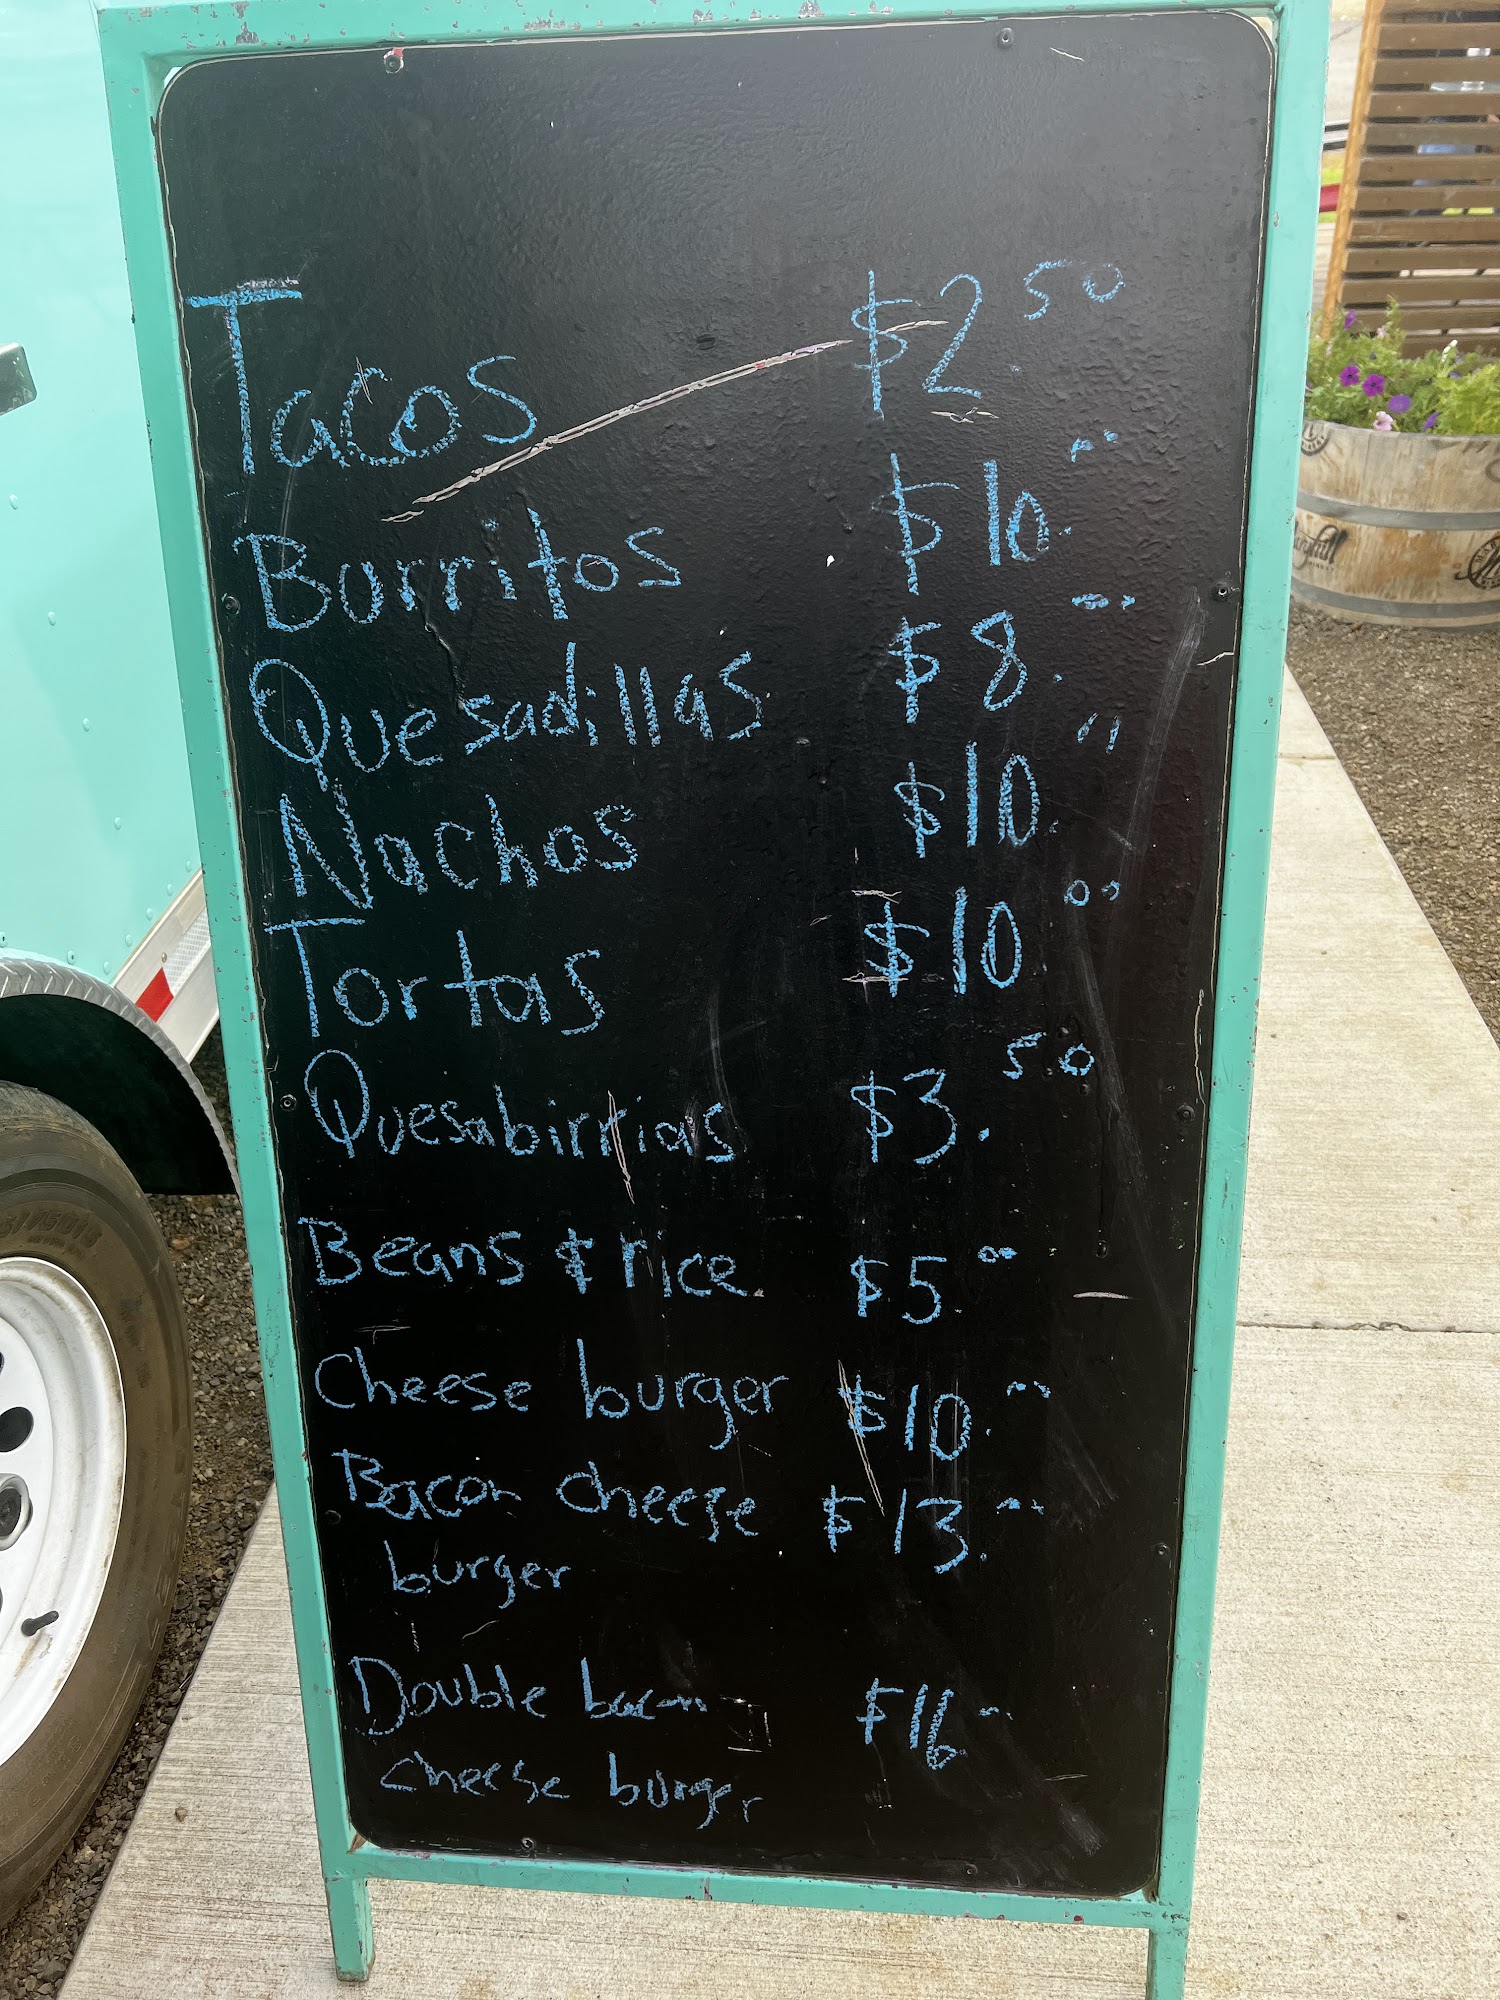 Tacos $2.50
Burritos $10.00
Quesadillas $8.00
Nachos $10."
Tortas $10.00
Quesabirrias $3.50
Beans & rice $5.00
Cheese burger $10.00
Bacon cheese $13.00
burger
Double bacon $16.00
cheese burger